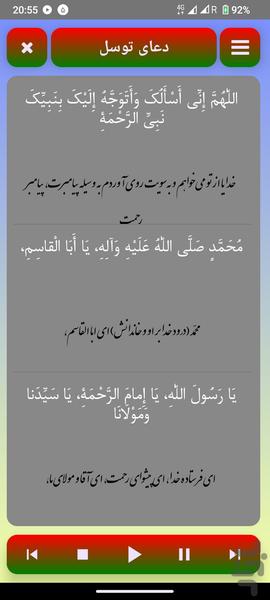 20:55
4G
R
92%
دعای توسل
اللّٰهُمَّ إِنِّی أَسْأَلُکَ وَأَتَوَجَّهُ إِلَیْکَ بِنَبِیِّکَ
نَبِیِّ الرَّحْمَةِ
خدایا از تو می‌خواهم و به سویت روی آوردم به وسیله پیامبرت، پیامبر
رحمت
مُحَمَّدٍ صَلَّی اللّٰهُ عَلَیْهِ وَآلِهِ، یَا أَبَا الْقاسِمِ،
محمّد (درود خدا بر او و خاندانش) ای ابا القاسم،
یَا رَسُولَ اللّٰهِ، یَا إِمامَ الرَّحْمَةِ، یَا سَیِّدَنا
وَمَوْلَانَا
ای فرستاده خدا، ای پیشوای رحمت، ای آقا و مولای ما،